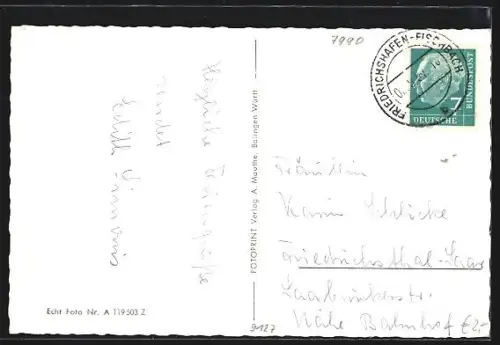 7990
FRIEDRICHSHAFEN-FISCHBACH
7
DEUTSCHE
BUNDESPOST
Herzliche
sendet
Edith
FOTOPRINT Verlag A. Mauthe, Balingen Württ.
Echt Foto Nr. A 119503 Z
Fräulein
Karin
Friedrichsthal-Saar
Saarbrückerstr.
Nähe Bahnhof €2,-
9127